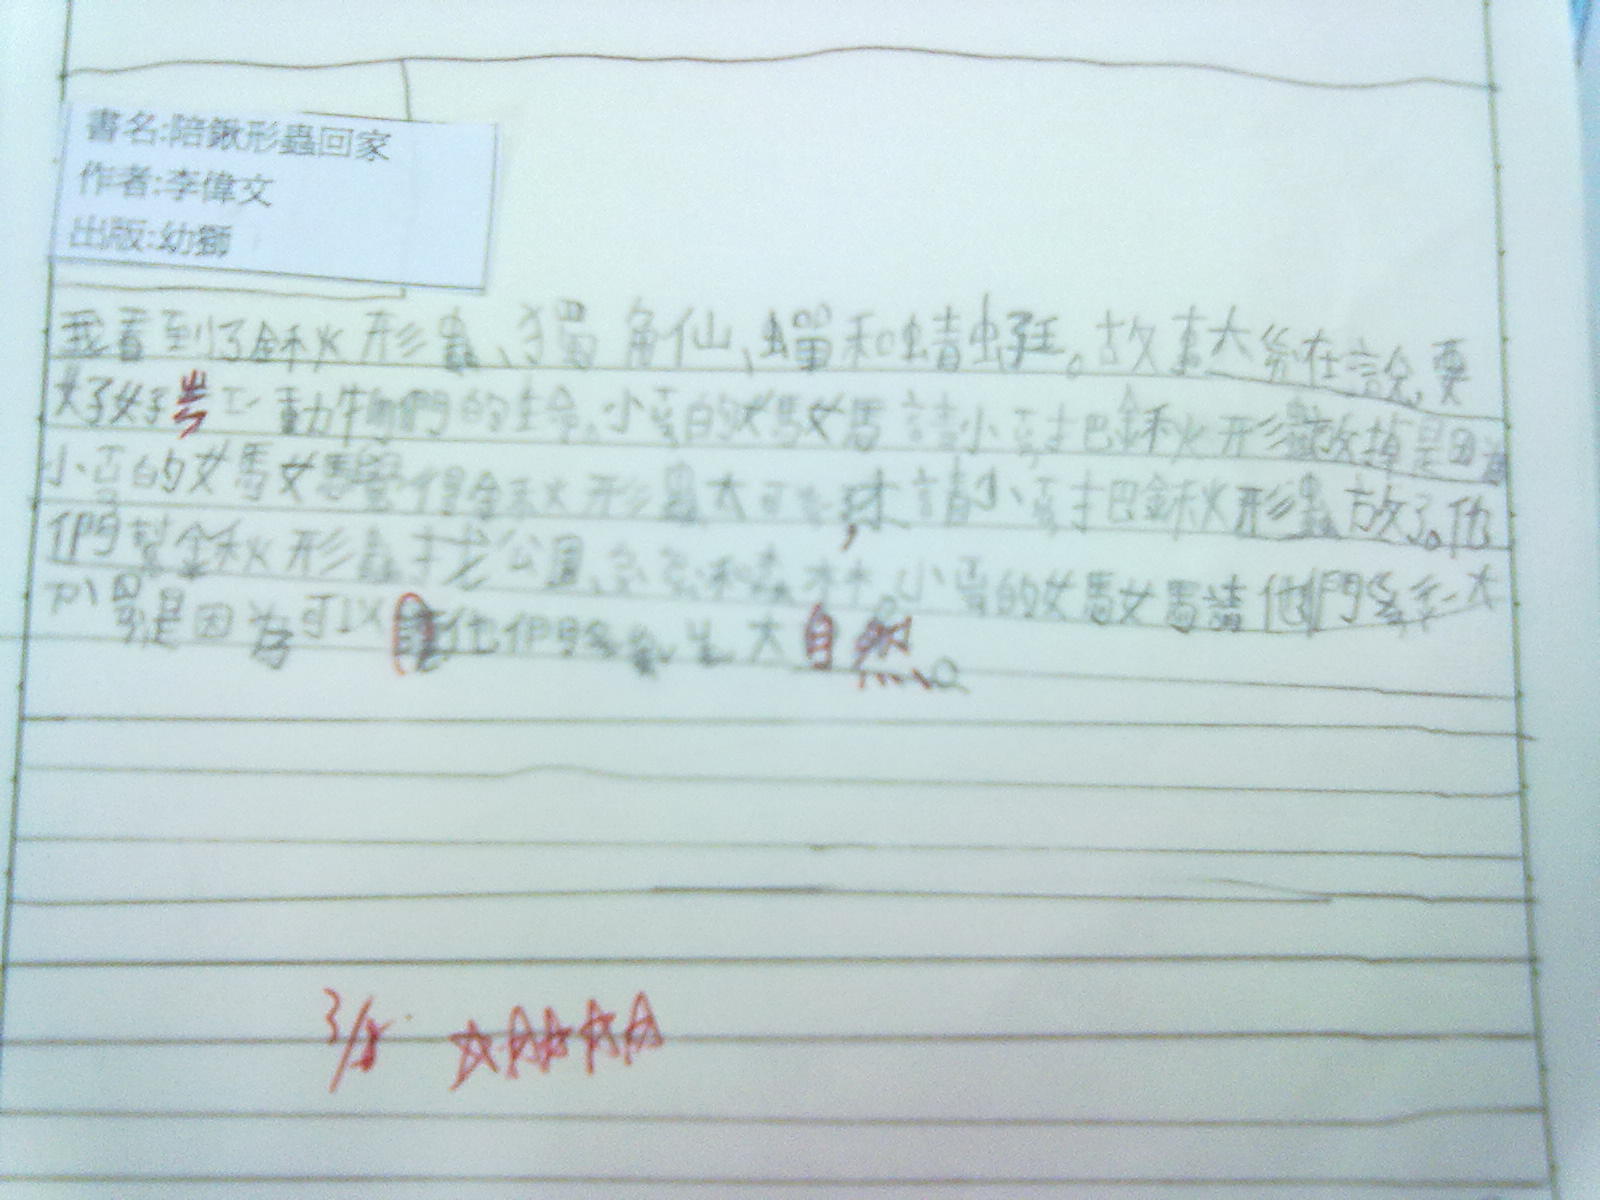 書名:陪鍬形蟲回家
作者:李偉文
出版:幼獅
我看到了鍬形蟲、獨角仙、蟬和蜻蜓。故事大多在說,要
好好 動物們的生命。小 的媽媽請小 把鍬形蟲放掉是因為
小 的媽媽覺得鍬形蟲太可 ,才請小 把鍬形蟲放了。他
們幫鍬形蟲找公園、 和森林。小 的媽媽請他們 大
是因為可以讓他們 大自然。
3/8 ☆☆☆☆☆